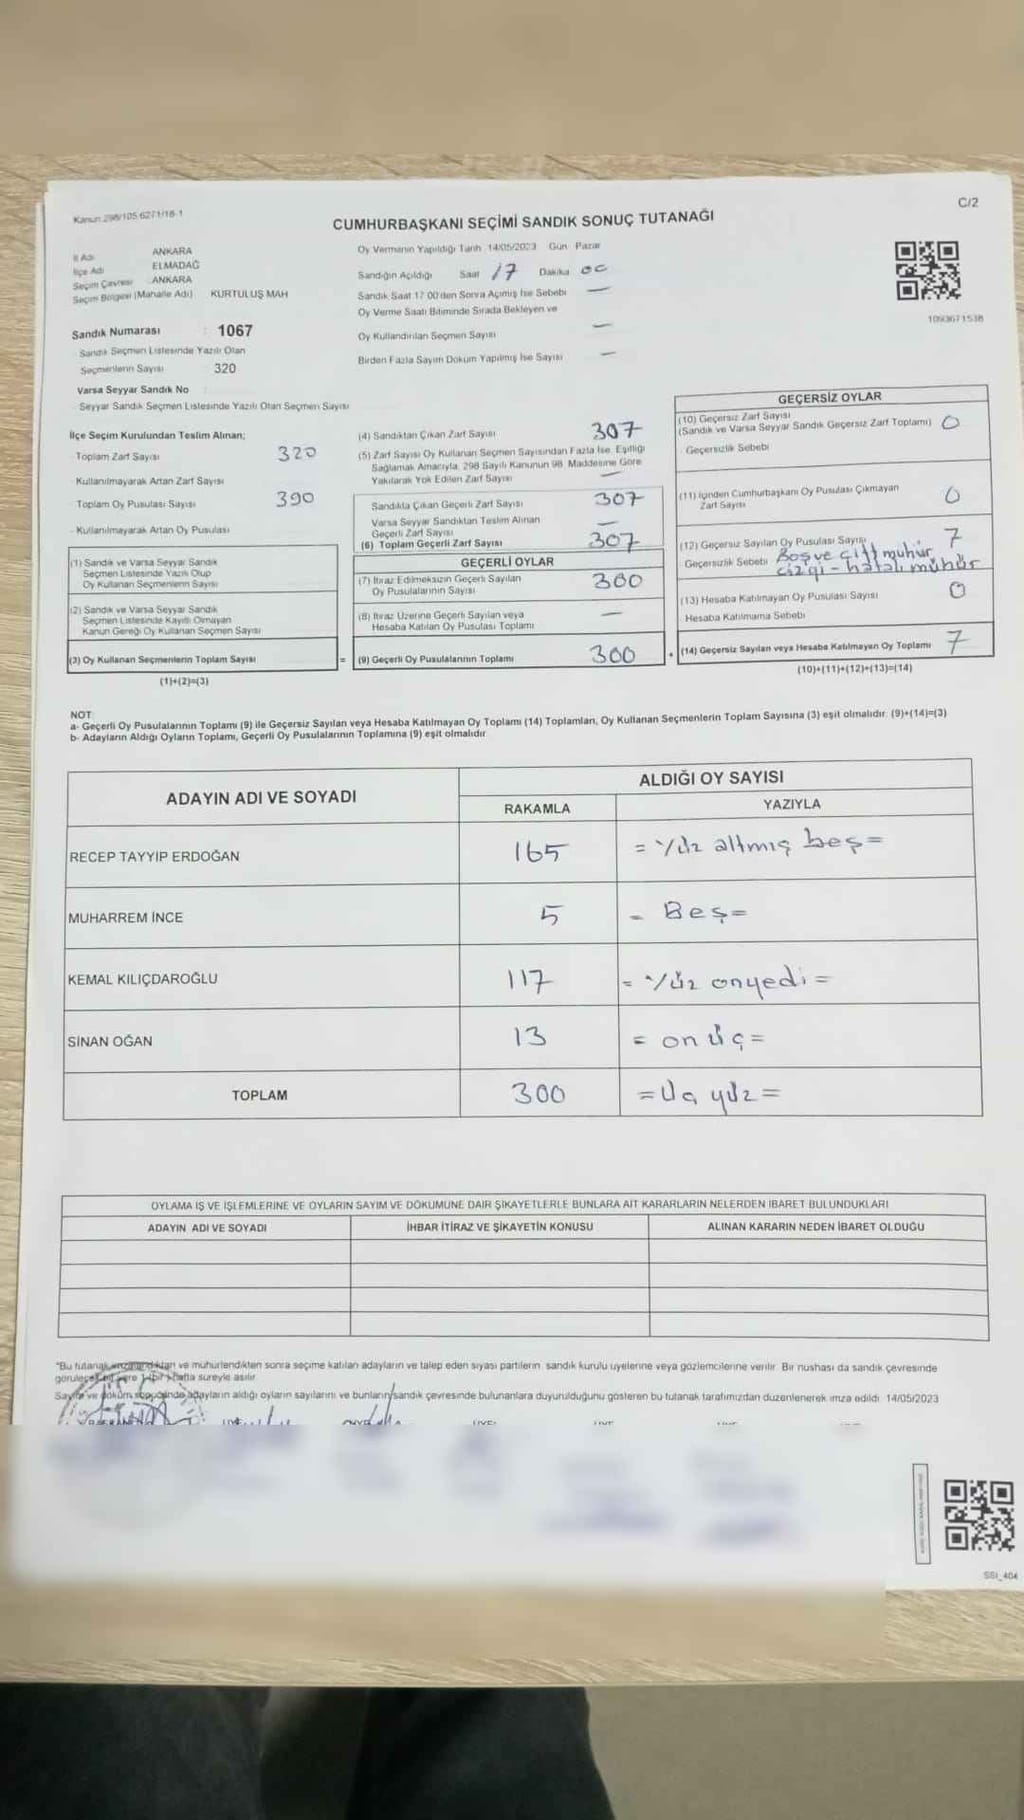 Kanun 298/105 6271/18-1
C/2
CUMHURBAŞKANI SEÇİMİ SANDIK SONUÇ TUTANAĞI
İl Adı ANKARA
İlçe Adı ELMADAĞ
Seçim Çevresi ANKARA
Seçim Bölgesi (Mahalle Adı) KURTULUŞ MAH
Sandık Numarası : 1067
Sandık Seçmen Listesinde Yazılı Olan
Seçmenlerin Sayısı 320
Varsa Seyyar Sandık No
Seyyar Sandık Seçmen Listesinde Yazılı Olan Seçmen Sayısı
Oy Vermenin Yapıldığı Tarih 14/05/2023 Gün Pazar
Sandığın Açıldığı Saat 17 Dakika 00
Sandık Saat 17 00'den Sonra Açılmış İse Sebebi —
Oy Verme Saati Bitiminde Sırada Bekleyen ve
Oy Kullandırılan Seçmen Sayısı —
Birden Fazla Sayım Döküm Yapılmış İse Sayısı —
1093671538
İlçe Seçim Kurulundan Teslim Alınan;
Toplam Zarf Sayısı 320
Kullanılmayarak Artan Zarf Sayısı
Toplam Oy Pusulası Sayısı 390
Kullanılmayarak Artan Oy Pusulası
(1) Sandık ve Varsa Seyyar Sandık
Seçmen Listesinde Yazılı Olup
Oy Kullanan Seçmenlerin Sayısı
(2) Sandık ve Varsa Seyyar Sandık
Seçmen Listesinde Kayıtlı Olmayan
Kanun Gereği Oy Kullanan Seçmen Sayısı
(3) Oy Kullanan Seçmenlerin Toplam Sayısı
(1)+(2)=(3)
(4) Sandıktan Çıkan Zarf Sayısı 307
(5) Zarf Sayısı Oy Kullanan Seçmen Sayısından Fazla İse, Eşitliği
Sağlamak Amacıyla, 298 Sayılı Kanunun 98. Maddesine Göre
Yakılarak Yok Edilen Zarf Sayısı —
Sandıkta Çıkan Geçerli Zarf Sayısı 307
Varsa Seyyar Sandıktan Teslim Alınan
Geçerli Zarf Sayısı —
(6) Toplam Geçerli Zarf Sayısı 307
GEÇERLİ OYLAR
(7) İtiraz Edilmeksizin Geçerli Sayılan
Oy Pusulalarının Sayısı 300
(8) İtiraz Üzerine Geçerli Sayılan veya
Hesaba Katılan Oy Pusulası Toplamı —
= (9) Geçerli Oy Pusulalarının Toplamı 300
GEÇERSİZ OYLAR
(10) Geçersiz Zarf Sayısı
(Sandık ve Varsa Seyyar Sandık Geçersiz Zarf Toplamı) 0
Geçersizlik Sebebi
(11) İçinden Cumhurbaşkanı Oy Pusulası Çıkmayan
Zarf Sayısı 0
(12) Geçersiz Sayılan Oy Pusulası Sayısı 7
Geçersizlik Sebebi Boş ve çift mühür
çizgi - hatalı mühür
(13) Hesaba Katılmayan Oy Pusulası Sayısı 0
Hesaba Katılmama Sebebi
+ (14) Geçersiz Sayılan veya Hesaba Katılmayan Oy Toplamı 7
(10)+(11)+(12)+(13)=(14)
NOT
a- Geçerli Oy Pusulalarının Toplamı (9) ile Geçersiz Sayılan veya Hesaba Katılmayan Oy Toplamı (14) Toplamları, Oy Kullanan Seçmenlerin Toplam Sayısına (3) eşit olmalıdır. (9)+(14)=(3)
b- Adayların Aldığı Oyların Toplamı, Geçerli Oy Pusulalarının Toplamına (9) eşit olmalıdır
ADAYIN ADI VE SOYADI ALDIĞI OY SAYISI
RAKAMLA YAZIYLA
RECEP TAYYİP ERDOĞAN 165 = Yüz altmış beş =
MUHARREM İNCE 5 = Beş =
KEMAL KILIÇDAROĞLU 117 = Yüz onyedi =
SİNAN OĞAN 13 = on üç =
TOPLAM 300 = Üç yüz =
OYLAMA İŞ VE İŞLEMLERİNE VE OYLARIN SAYIM VE DÖKÜMÜNE DAİR ŞİKAYETLERLE BUNLARA AİT KARARLARIN NELERDEN İBARET BULUNDUKLARI
ADAYIN ADI VE SOYADI İHBAR İTİRAZ VE ŞİKAYETİN KONUSU ALINAN KARARIN NEDEN İBARET OLDUĞU
ve mühürlendikten sonra seçime katılan adayların ve talep eden siyasi partilerin sandık kurulu üyelerine veya gözlemcilerine verilir. Bir nüshası da sandık çevresinde
hafta süreyle asılır
adayların aldığı oyların sayılarını ve bunların sandık çevresinde bulunanlara duyurulduğunu gösteren bu tutanak tarafımızdan düzenlenerek imza edildi 14/05/2023
SSI_404